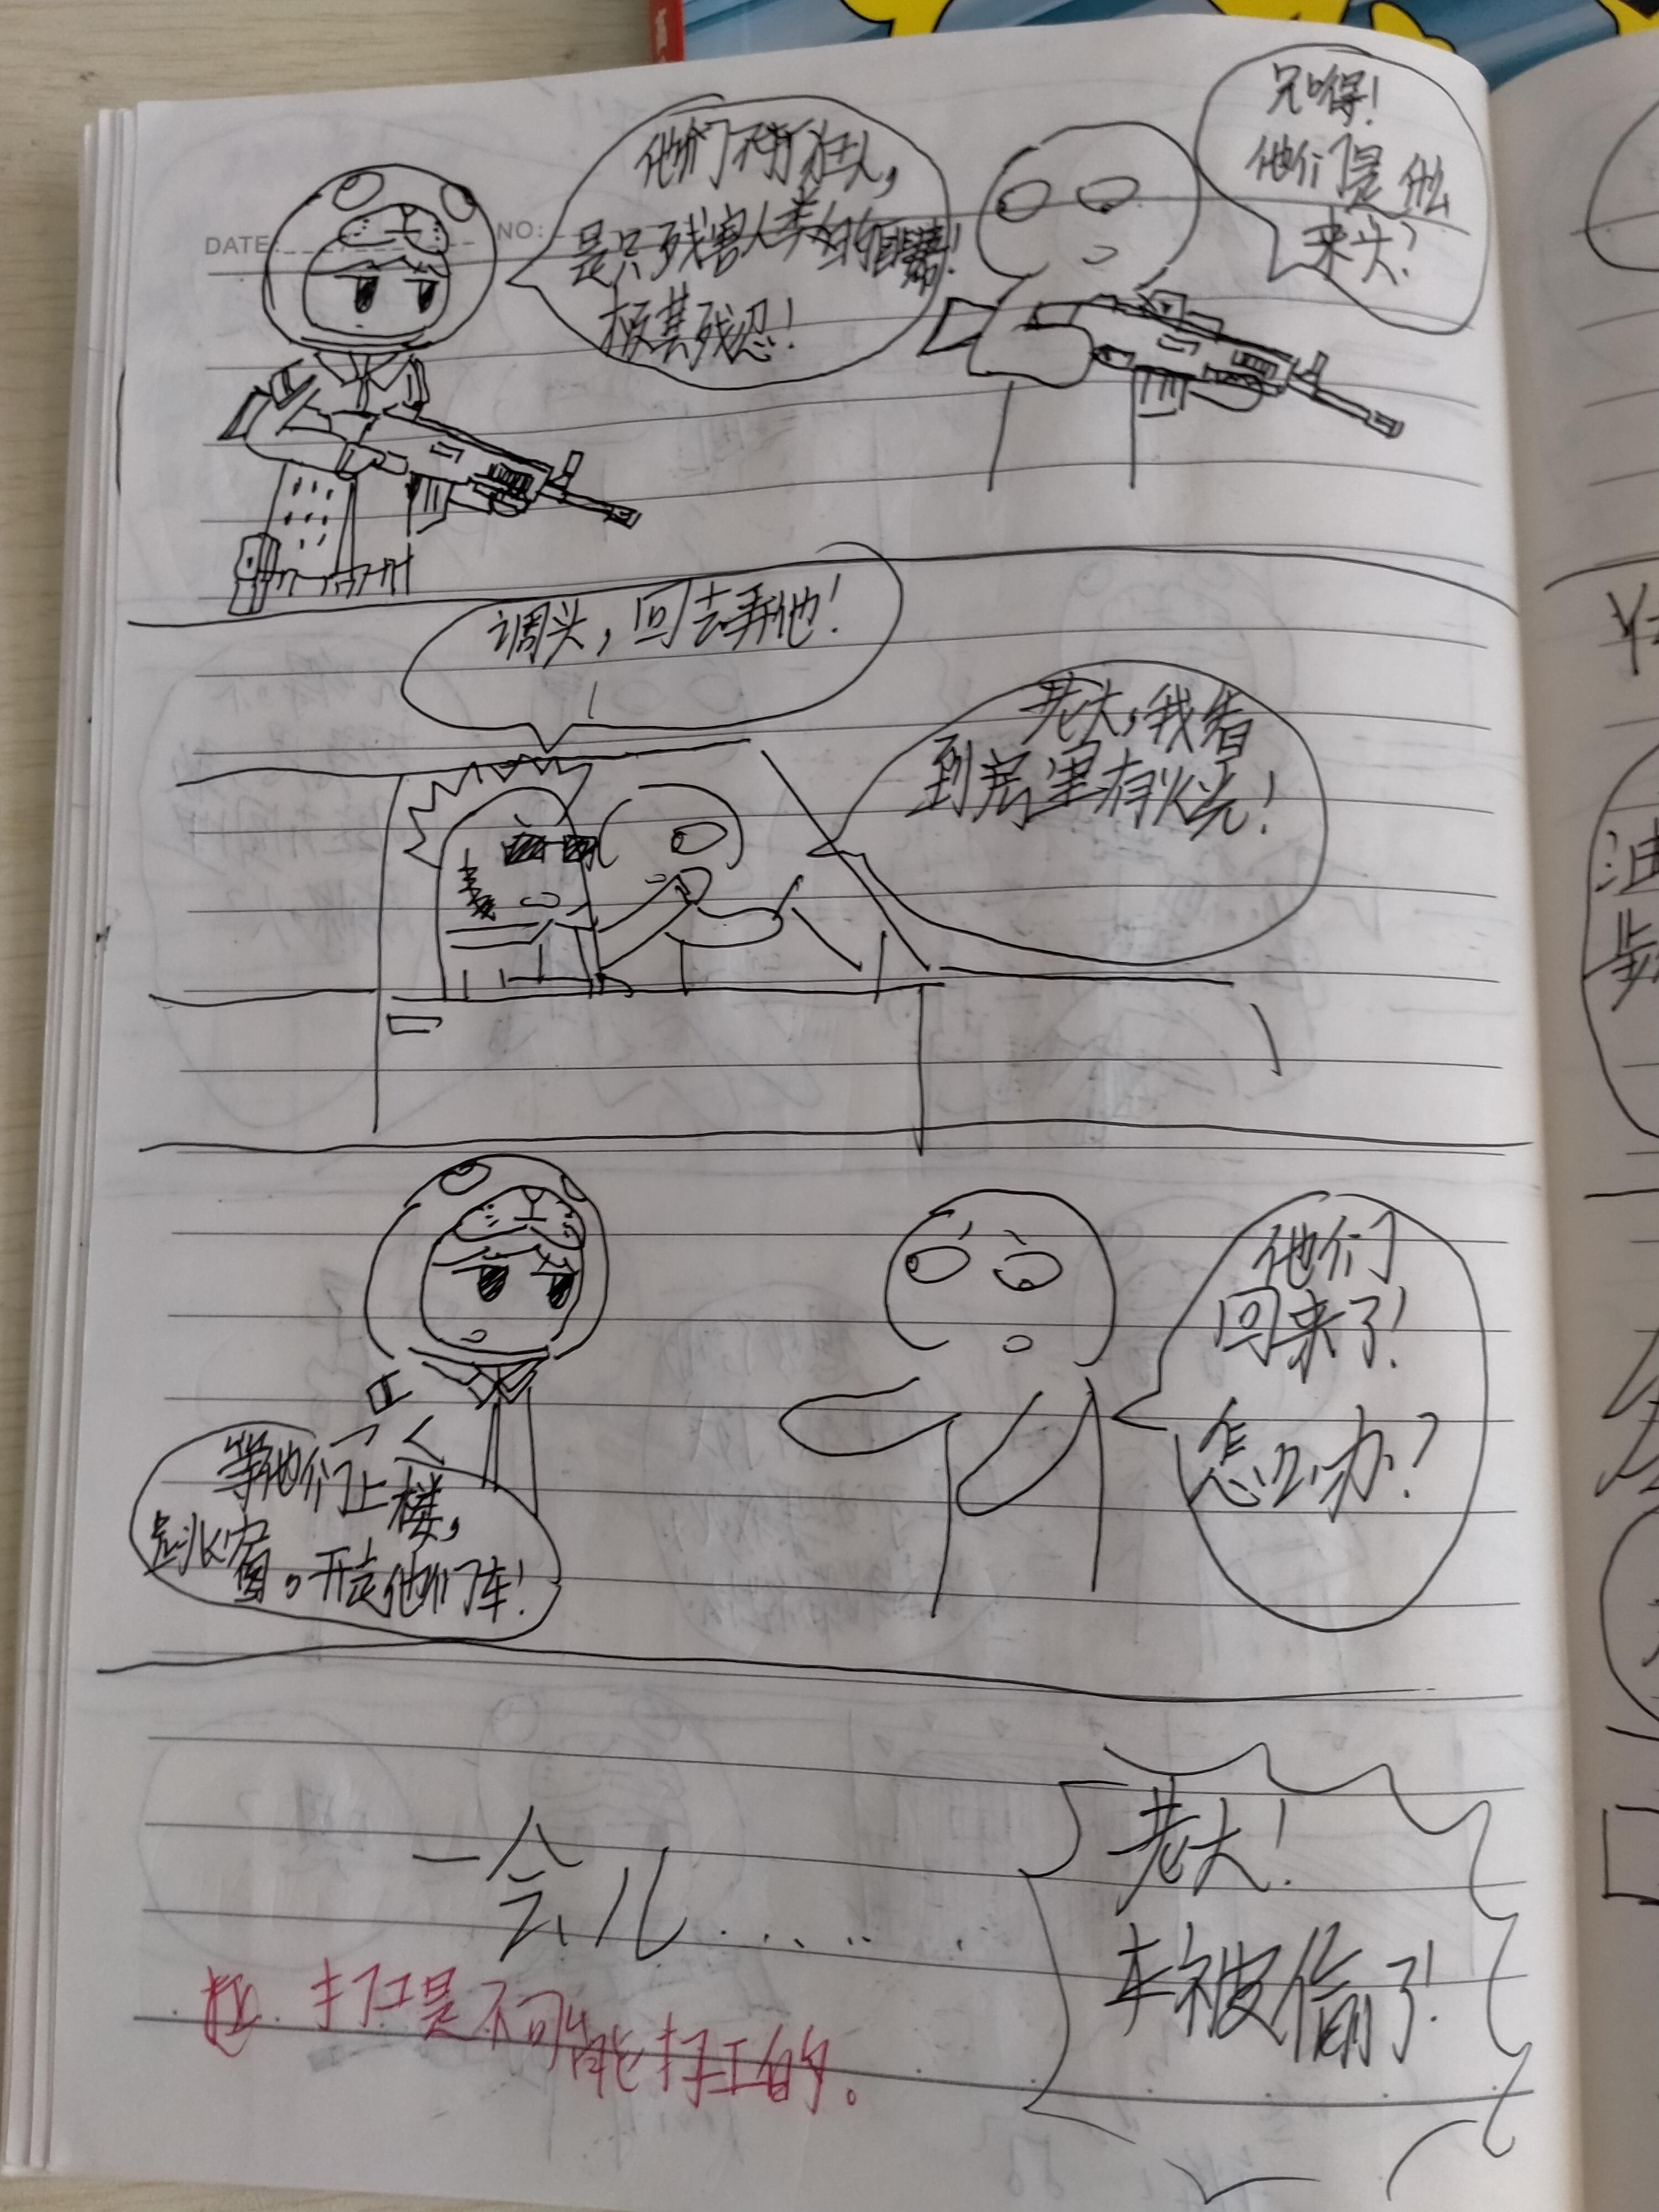 DATE:
NO:
兄嘚!
他们是什么
来头?
他们不有狂人,
是只残害人类的
极其残忍!
调头,回去弄他!
老大,我看
到房里有火光!
他们
回来了!
怎么办?
等他们上楼,
窗。开走他们车!
一会儿......
老大!
车被偷了!
打工是不可能打工的。